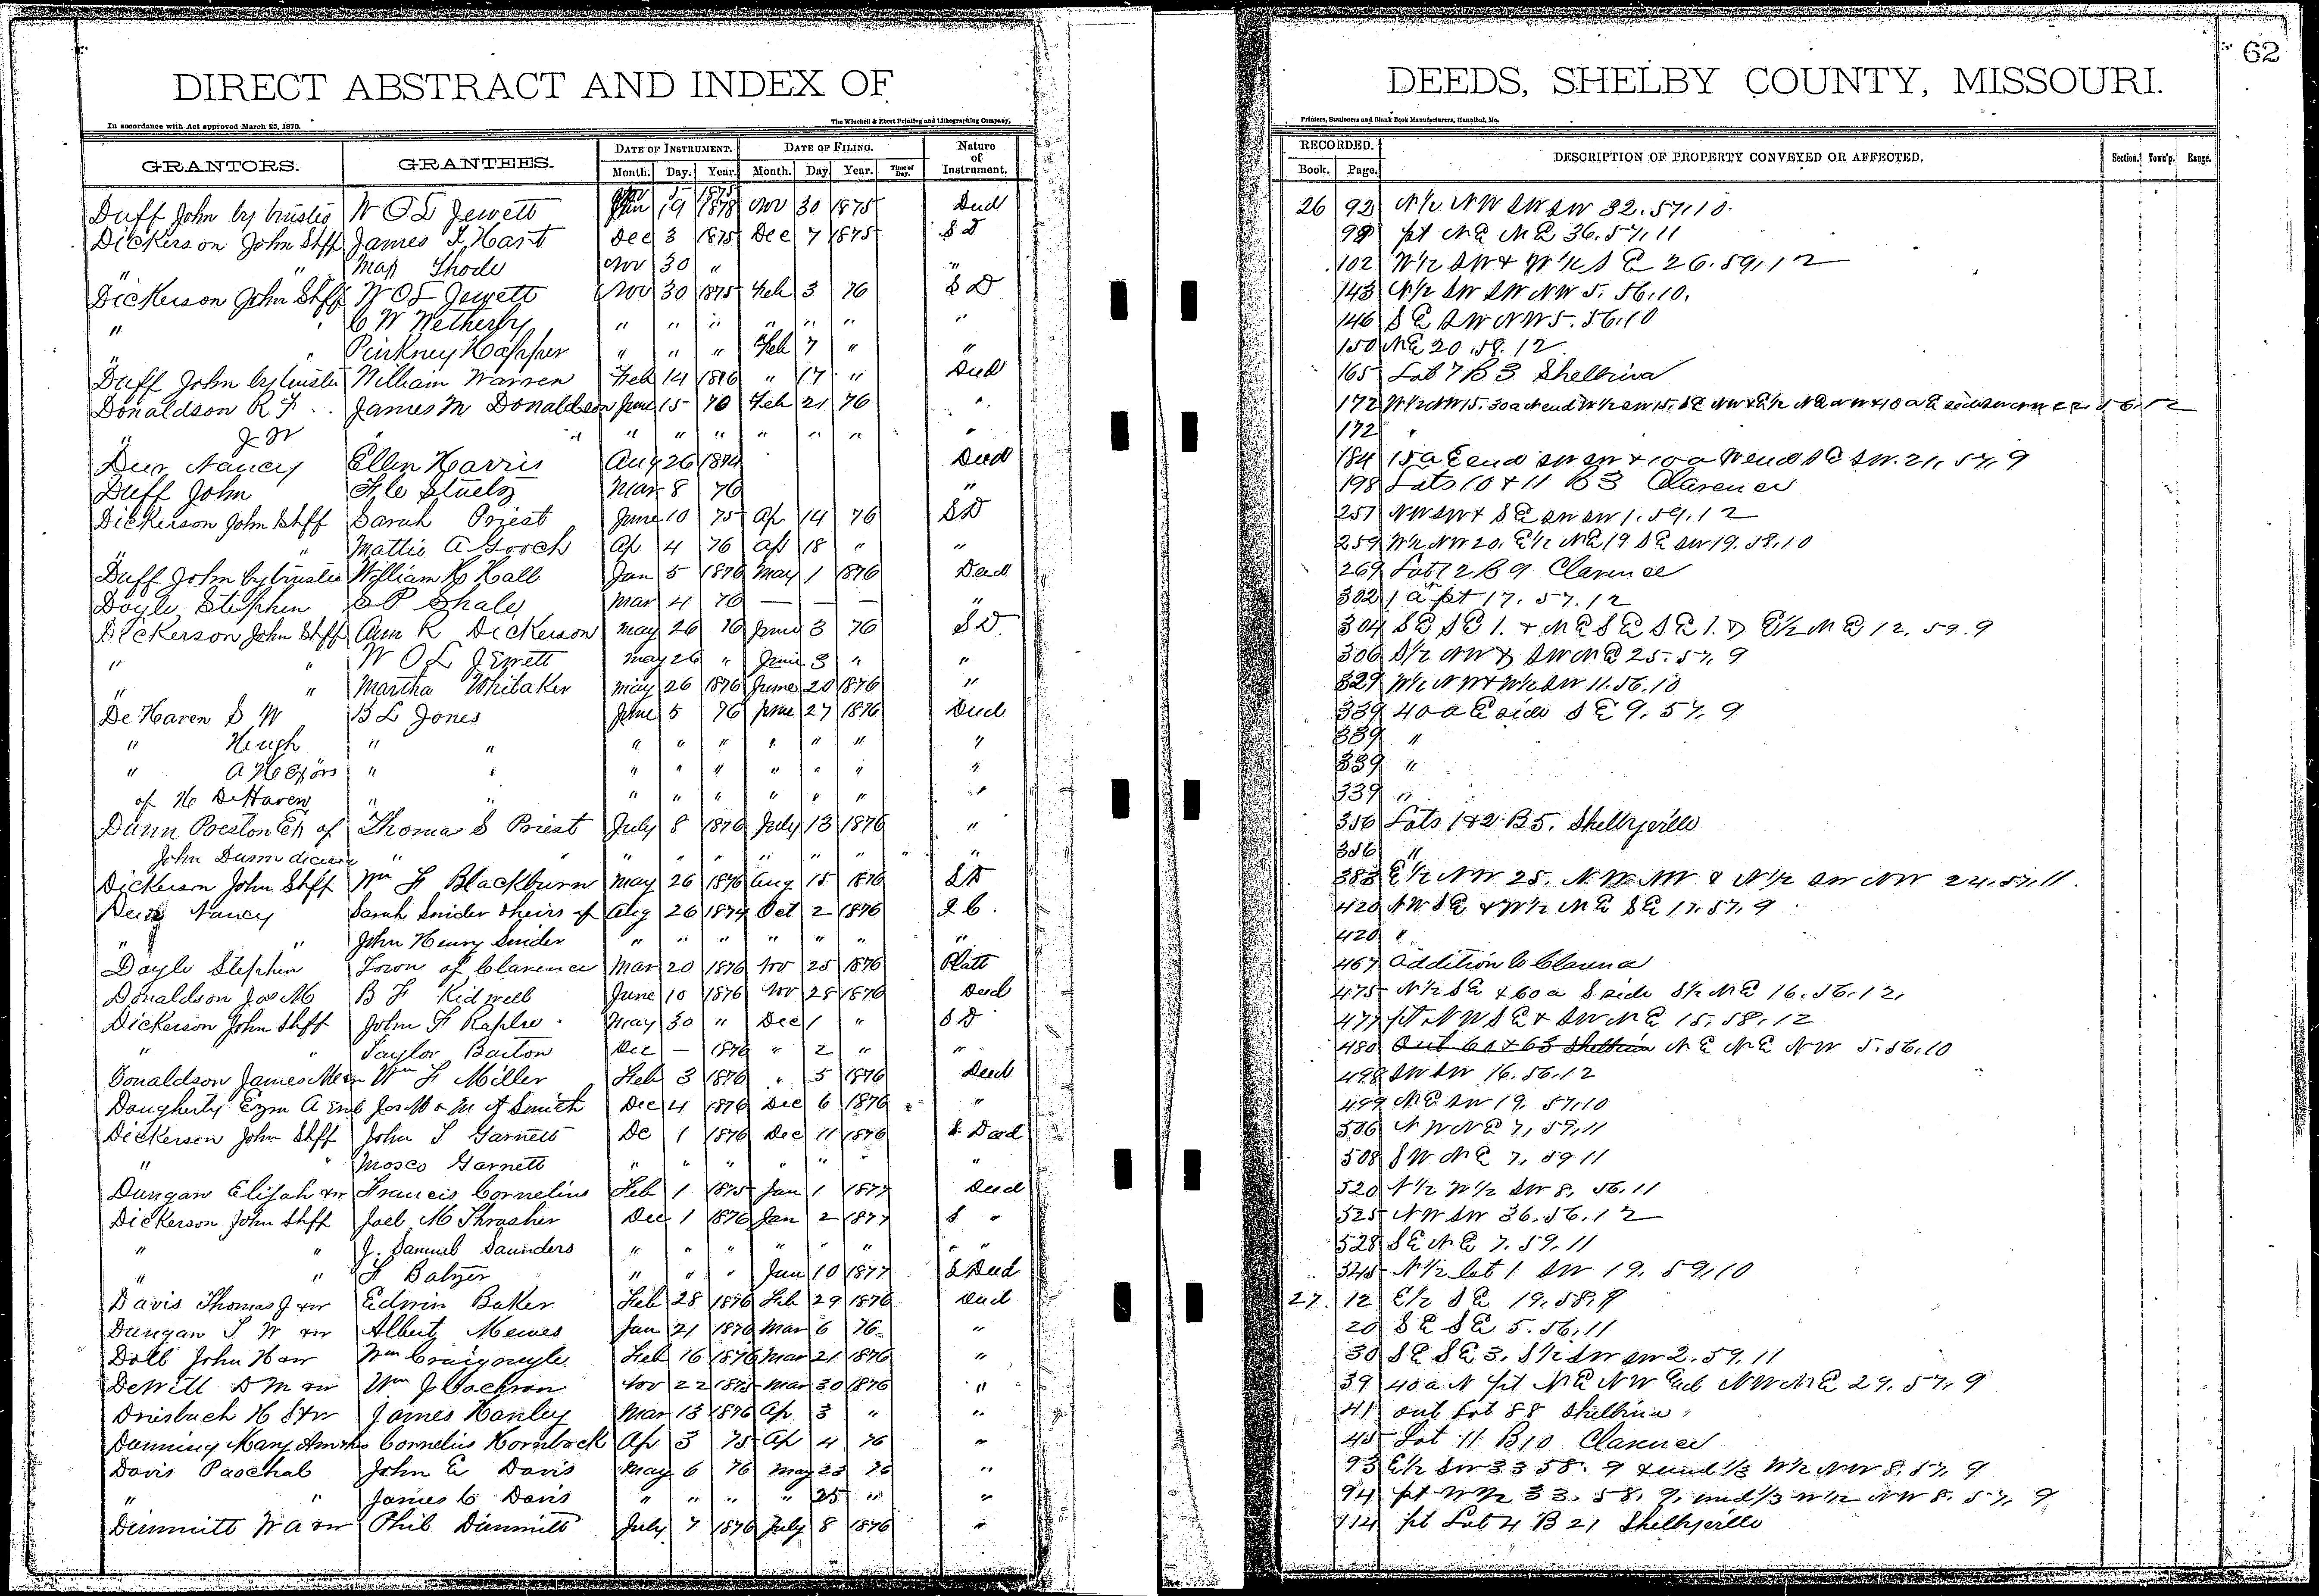 62
DIRECT ABSTRACT AND INDEX OF DEEDS, SHELBY COUNTY, MISSOURI.
In accordance with Act approved March 25, 1870. The Winchell & Ebert Printing and Lithographing Company, Printers, Stationers and Blank Book Manufacturers, Hannibal, Mo.
GRANTORS. GRANTEES. DATE OF INSTRUMENT. DATE OF FILING. Nature of Instrument. RECORDED. DESCRIPTION OF PROPERTY CONVEYED OR AFFECTED. Section. Town'p. Range.
Month. Day. Year. Month. Day Year. Time of Day. Book. Page.
Duff John by trustee W O L Jewett 19 1878 Nov 30 1875 Deed 26 92 N½ NW SW SW 32.57.10
Dickerson John Shff James T Hart Dec 3 1875 Dec 7 1875 S D pt NE NE 36.57.11
" " Map Thode Nov 30 " " 102 W½ SW & W½ SE 26.59.12
Dickerson John Shff W O L Jewett Nov 30 1875 Feb 3 76 S D 143 N½ SW SW NW 5.56.10.
" " C W Wetherby " " " " " " " 146 SE SW NW 5.56.10
" " Pinkney Happer " " " Feb 7 " " 150 NE 20.58.12
Duff John by trustee William Warren Feb 14 1876 " 17 " Deed 165 Lot 7 B 3 Shelbina
Donaldson R F James M Donaldson June 15 70 Feb 21 76 " 172 W½ NW 15. 30a N end W½ SW 15. SE NW & E½ NE NW & 10 a E side
" J W " " " " " " " " " 172 "
Duer Nancy Ellen Harris Aug 26 1874 Deed 184 15a E end SW SW & 10 a W end SE SW. 21.57.9
Duff John Mar 8 76 " 198 Lots 10 & 11 B 3 Clarence
Dickerson John Shff Sarah Priest June 10 75 Ap 14 76 S D 251 NW SW & SE SW SW 1.59.12
" " Mattie A Gooch Ap 4 76 Ap 18 " " 259 W½ NW 20. E½ NE 19 SE SW 19.58.10
Duff John by trustee William H Hall Jan 5 1876 May 1 1876 Deed 269 Lot 12 B 9 Clarence
Doyle Stephen S P Shale Mar 4 76 — — — " 302 1 a pt 17.57.12
Dickerson John Shff Ann R Dickerson May 26 76 June 3 76 S D. 304 SE SE 1. & NE SE SE 1. & E½ NE 12.59.9
" " W O L Jewett May 26 " June 3 " " 306 S½ NW & SW NE 25.57.9
" " Martha Whitaker May 26 1876 June 20 1876 " 329 W½ NW & W½ SW 11.56.10
De Haven S W B L Jones June 5 76 June 27 1876 Deed 339 40 a E side SE 9.57.9
" Hugh " " " " " " " " " 339 "
" A H Exors " " " " " " " " " 339 "
of H DeHaven " " " " " " " " " 339 "
Dunn Preston Ex of Thomas S Priest July 8 1876 July 13 1876 " 356 Lots 1 & 2 B 5. Shelbyville
John Dunn deceased " " " " " " " " " 356 "
Dickerson John Shff Wm F Blackburn May 26 1876 Aug 15 1876 S D 383 E½ NW 25. NW NW & N½ SW NW 24.57.11.
Duer Nancy Sarah Snider & heirs of Aug 26 1874 Oct 2 1876 Q C. 420 NW SE & W½ NE SE 17.57.9
" " John Henry Snider " " " " " " " 420 "
Doyle Stephen Town of Clarence Mar 20 1876 Nov 25 1876 Platt 467 Addition to Clarence
Donaldson Jas M B F Kidwell June 10 1876 Nov 28 1876 Deed 475 N½ SE & 60 a S side S½ NE 16.56.12.
Dickerson John Shff John F Raplee May 30 " Dec 1 " S D 477 pt NW SE & SW NE 15.58.12
" " Taylor Barton Dec — 1876 " 2 " " 480 Out 60 & 63 Shelbina NE NE NW 5.56.10
Donaldson James M & w Wm F Miller Feb 3 1876 " 5 1876 Deed 498 SW SW 16.56.12
Daugherty Ezm A Jos M & M A Smith Dec 4 1876 Dec 6 1876 " 499 NE SW 19.57.10
Dickerson John Shff John S Garnett De 1 1876 Dec 11 1876 S Deed 506 NW NE 7.59.11
" " Mosco Garnett " " " " " " 508 SW NE 7.59 11
Dungan Elijah & w Francis Cornelius Feb 1 1875 Jan 1 1877 Deed 520 N½ W½ SW 8.56.11
Dickerson John Shff Joel M Thrasher Dec 1 1876 Jan 2 1877 S " 525 NW SW 36.56.12
" " J. Samuel Saunders " " " " " " " " 528 SE NE 7.59.11
" " F Balzer " " " Jan 10 1877 S Deed 545 N½ lot 1 SW 19.59.10
Davis Thomas J & w Edwin Baker Feb 28 1876 Feb 29 1876 Deed 27. 12 E½ SE 19.58.9
Dungan S W & w Albert Mewes Jan 21 1876 Mar 6 76 " 20 SE SE 5.56.11
Doll John H & w Wm Craigmyle Feb 16 1876 Mar 21 1876 " 30 SE SE 3. S½ SW SW 2.59.11
DeWitt D M & w Wm J Cochran Nov 22 1875 Mar 30 1876 " 39 40 a N pt NE NW Exc NW NE 29.57.9
Driesbach H S & w James Hanley Mar 13 1876 Ap 3 " " 41 out Lot 88 Shelbina
Dunning Mary Ann Cornelius Hornback Ap 3 75 Ap 4 76 " 45 Lot 11 B 10 Clarence
Davis Paschal John E Davis May 6 76 May 23 76 " 93 E½ SW 33 58.9 & und ⅓ W½ NW 8.57.9
" " James C Davis " " " " 25 " " 94 pt W½ 33.58.9. und ⅓ W½ NW 8.57.9
Dimmitt W A & w Phil Dimmitt July 7 1876 July 8 1876 " 114 pt Lot 4 B 21 Shelbyville